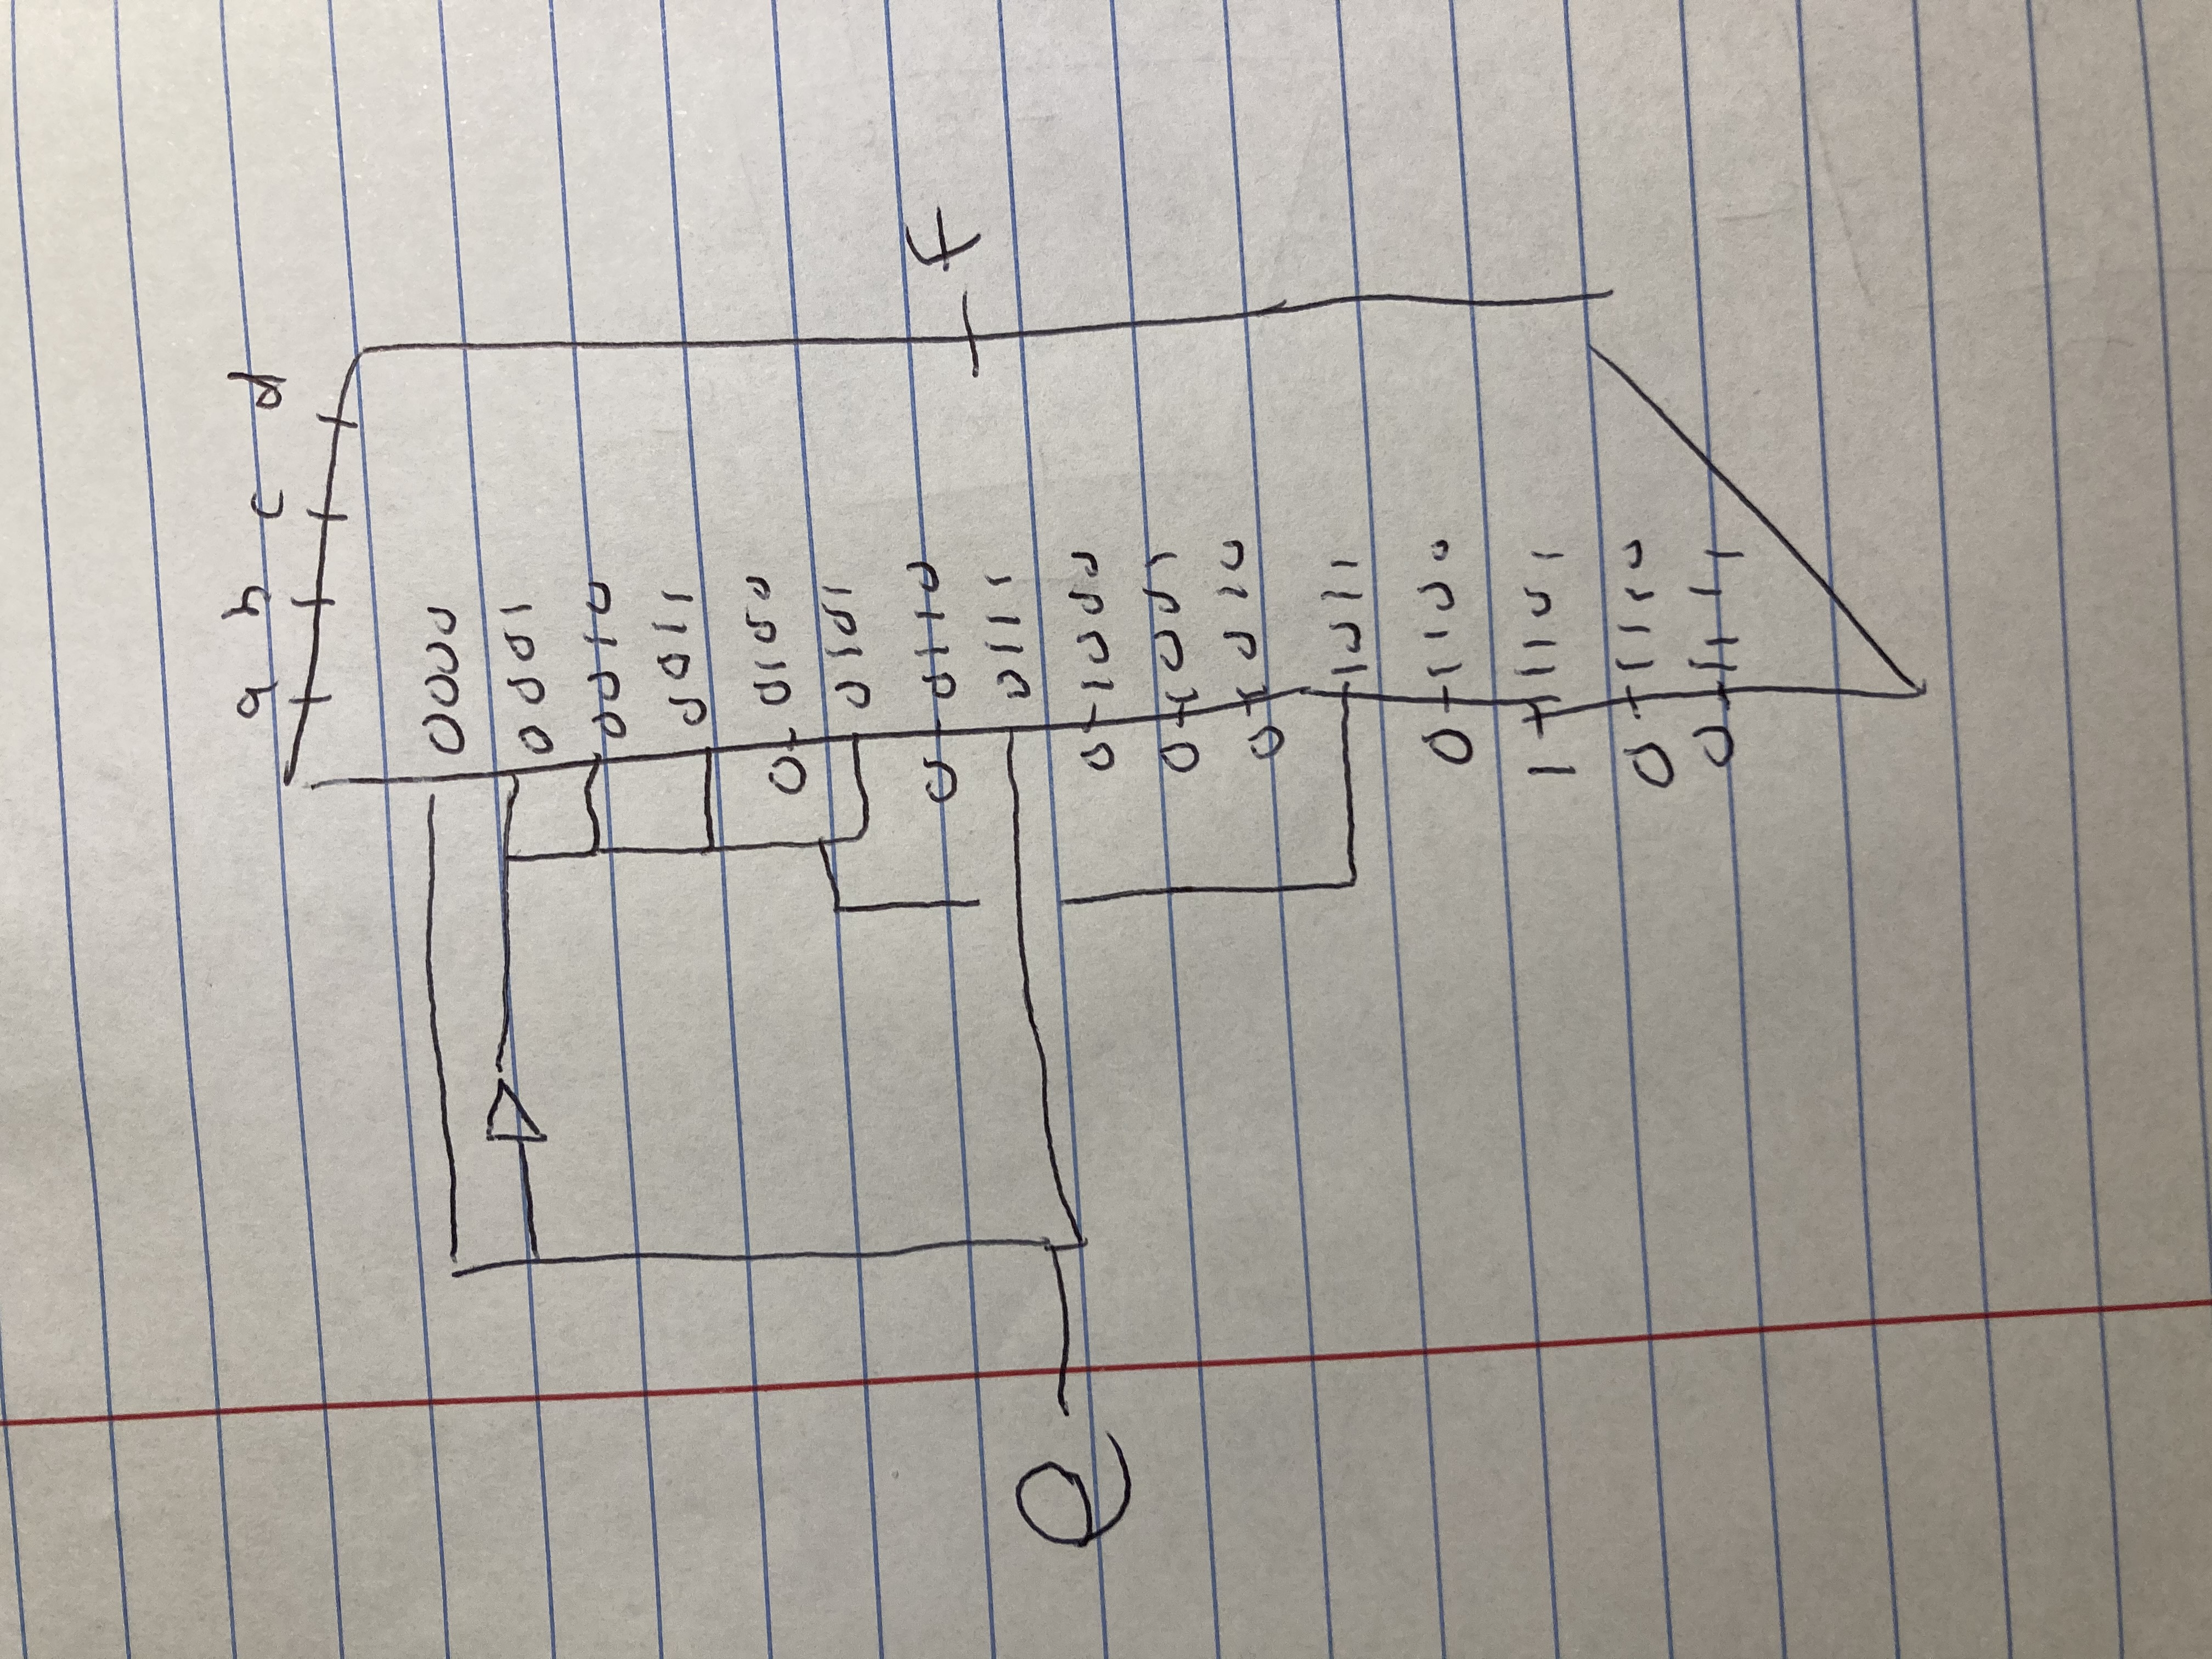 a b c d
0000
0001
0010
0011
0 0100
0101
0 0110
F
0111
e
0 1000
0 1001
0 1010
1011
0 1100
1 1101
0 1110
0 1111